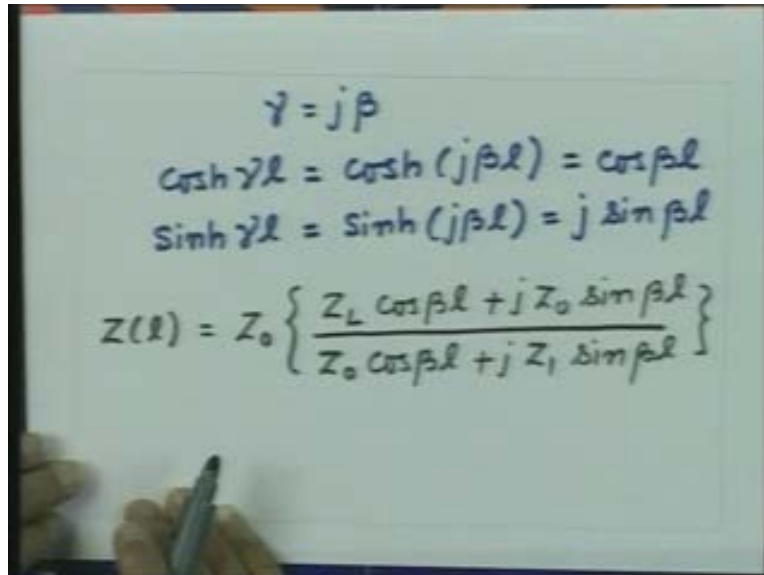 γ = jβ
cosh γl = cosh (jβl) = cosβl
sinh γl = sinh (jβl) = j sin βl
Z(l) = Z₀ { (Z_L cosβl + j Z₀ sin βl) / (Z₀ cosβl + j Z₁ sin βl) }